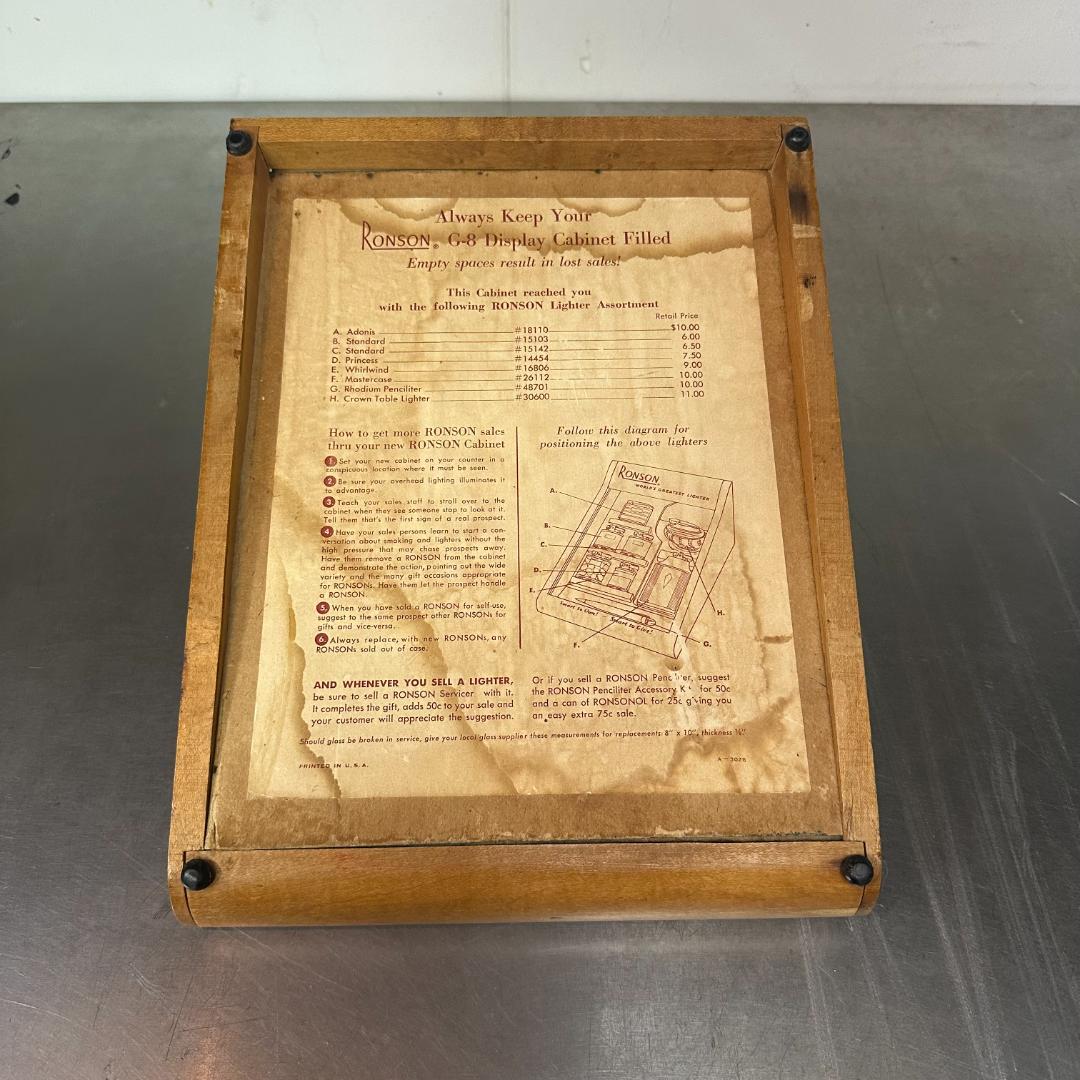 Always Keep Your
RONSON® G-8 Display Cabinet Filled
Empty spaces result in lost sales!
This Cabinet reached you
with the following RONSON Lighter Assortment
Retail Price
A. Adonis #18110 $10.00
B. Standard #15103 6.00
C. Standard #15142 6.50
D. Princess #14454 7.50
E. Whirlwind #16806 9.00
F. Mastercase #26112 10.00
G. Rhodium Penciliter #48701 10.00
H. Crown Table Lighter #30600 11.00
How to get more RONSON sales
thru your new RONSON Cabinet
1 Set your new cabinet on your counter in a
conspicuous location where it must be seen.
2 Be sure your overhead lighting illuminates it
to advantage.
3 Teach your sales staff to stroll over to the
cabinet when they see someone stop to look at it.
Tell them that's the first sign of a real prospect.
4 Have your sales persons learn to start a con-
versation about smoking and lighters without the
high pressure that may chase prospects away.
Have them remove a RONSON from the cabinet
and demonstrate the action, pointing out the wide
variety and the many gift occasions appropriate
for RONSONs. Have them let the prospect handle
a RONSON.
5 When you have sold a RONSON for self-use,
suggest to the same prospect other RONSONs for
gifts and vice-versa.
6 Always replace, with new RONSONs, any
RONSONs sold out of case.
Follow this diagram for
positioning the above lighters
RONSON
WORLD'S GREATEST LIGHTER
A.
B.
C.
D.
E.
F.
G.
H.
Smart to Own!
Smart to Give!
AND WHENEVER YOU SELL A LIGHTER,
be sure to sell a RONSON Servicer with it.
It completes the gift, adds 50c to your sale and
your customer will appreciate the suggestion.
Or if you sell a RONSON Penciliter, suggest
the RONSON Penciliter Accessory Kit for 50c
and a can of RONSONOL for 25c giving you
an easy extra 75c sale.
Should glass be broken in service, give your local glass supplier these measurements for replacements: 8" x 10", thickness
PRINTED IN U.S.A.
A-3028